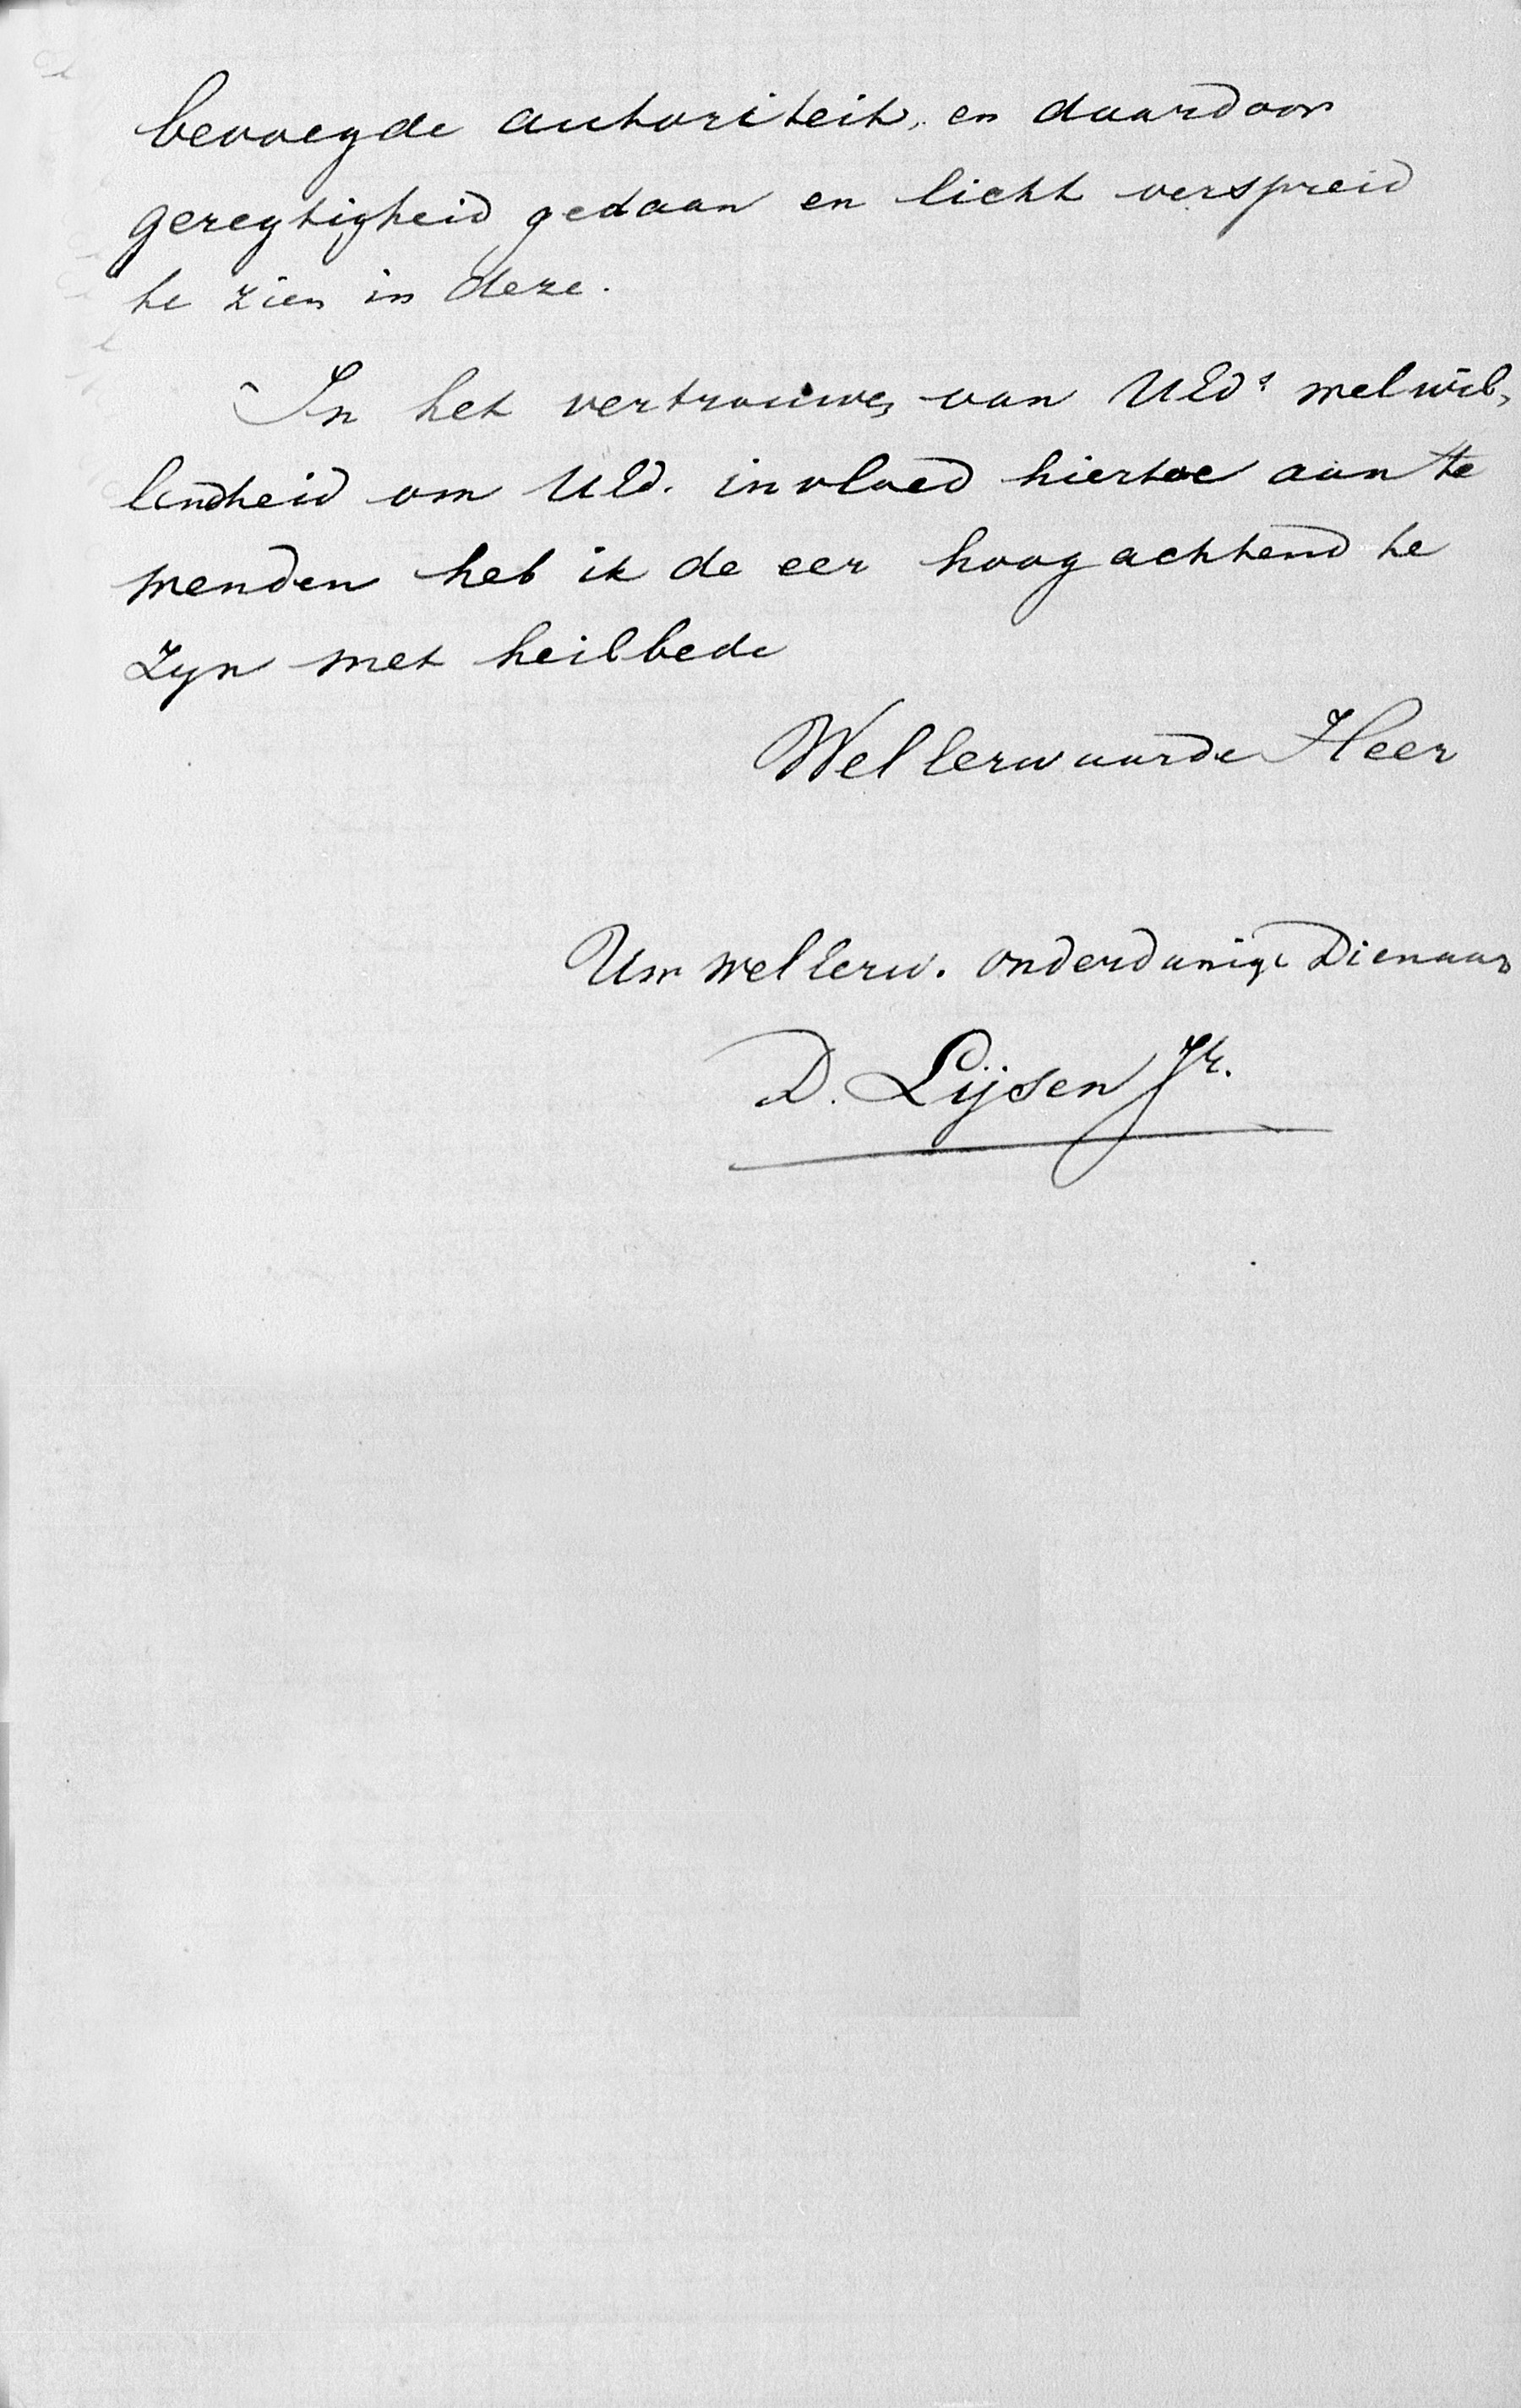 bevoegde autoriteit, en daardoor
geregtigheid gedaan en licht verspreid
te zien in deze.
In het vertrouwen van UEd.s welwil,
lendheid om UEd. invloed hiertoe aan te
wenden heb ik de eer hoogachtend te
zyn met heilbede
WelEerwaarde Heer
Uw welEerw. onderdanige Dienaar
D. Lijsen Jr.